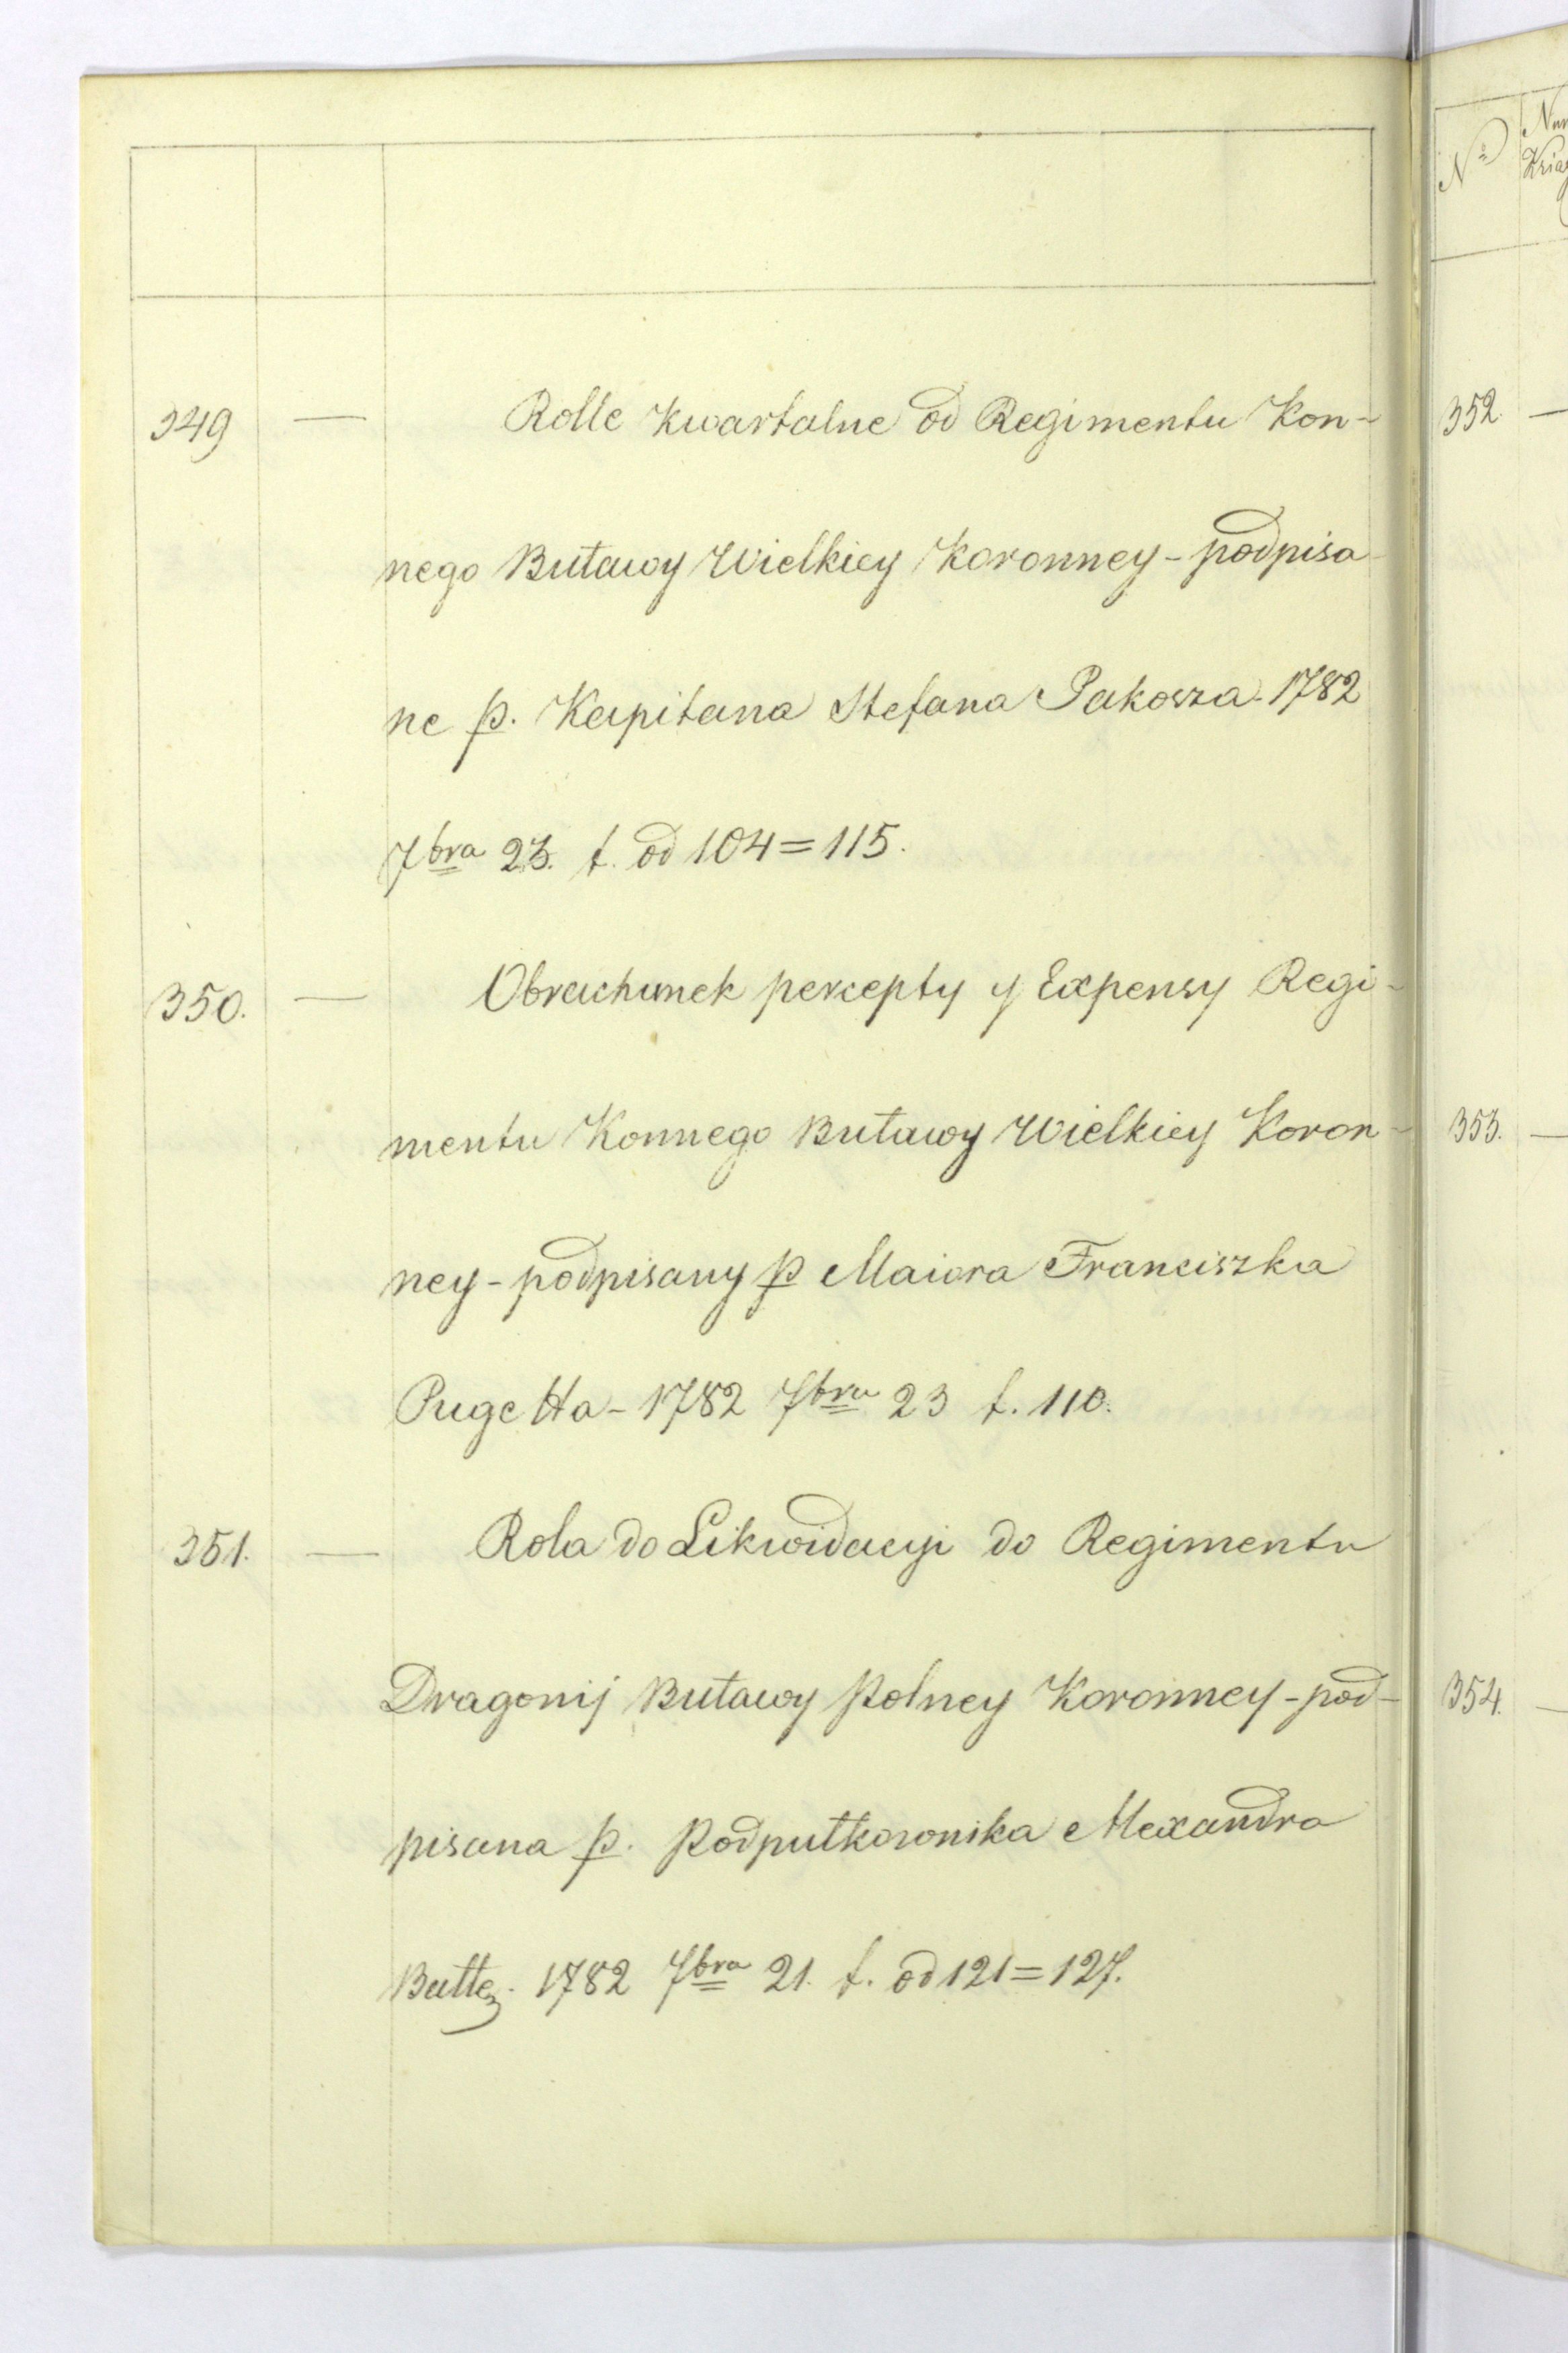 349 — Rolle kwartalne od Regimentu Kon-
nego Buławy Wielkiey Koronney - podpisa-
ne p. Kapitana Stefana Pakosza - 1782
7bra 23. f. od 104 = 115.
350. — Obrachunek percepty y Expensy Regi-
mentu Konnego Buławy Wielkiey Koron-
ney - podpisany p Maiora Franciszka
Pugetta - 1782 7bra 23 f. 110.
351. — Rola do Likwidacyi do Regimentu
Dragonij Buławy Polney Koronney - pod-
pisana p. Podpułkownika Alexandra
1782 7bra 21. f. od 121 = 127.
No
352. —
353. —
354. —